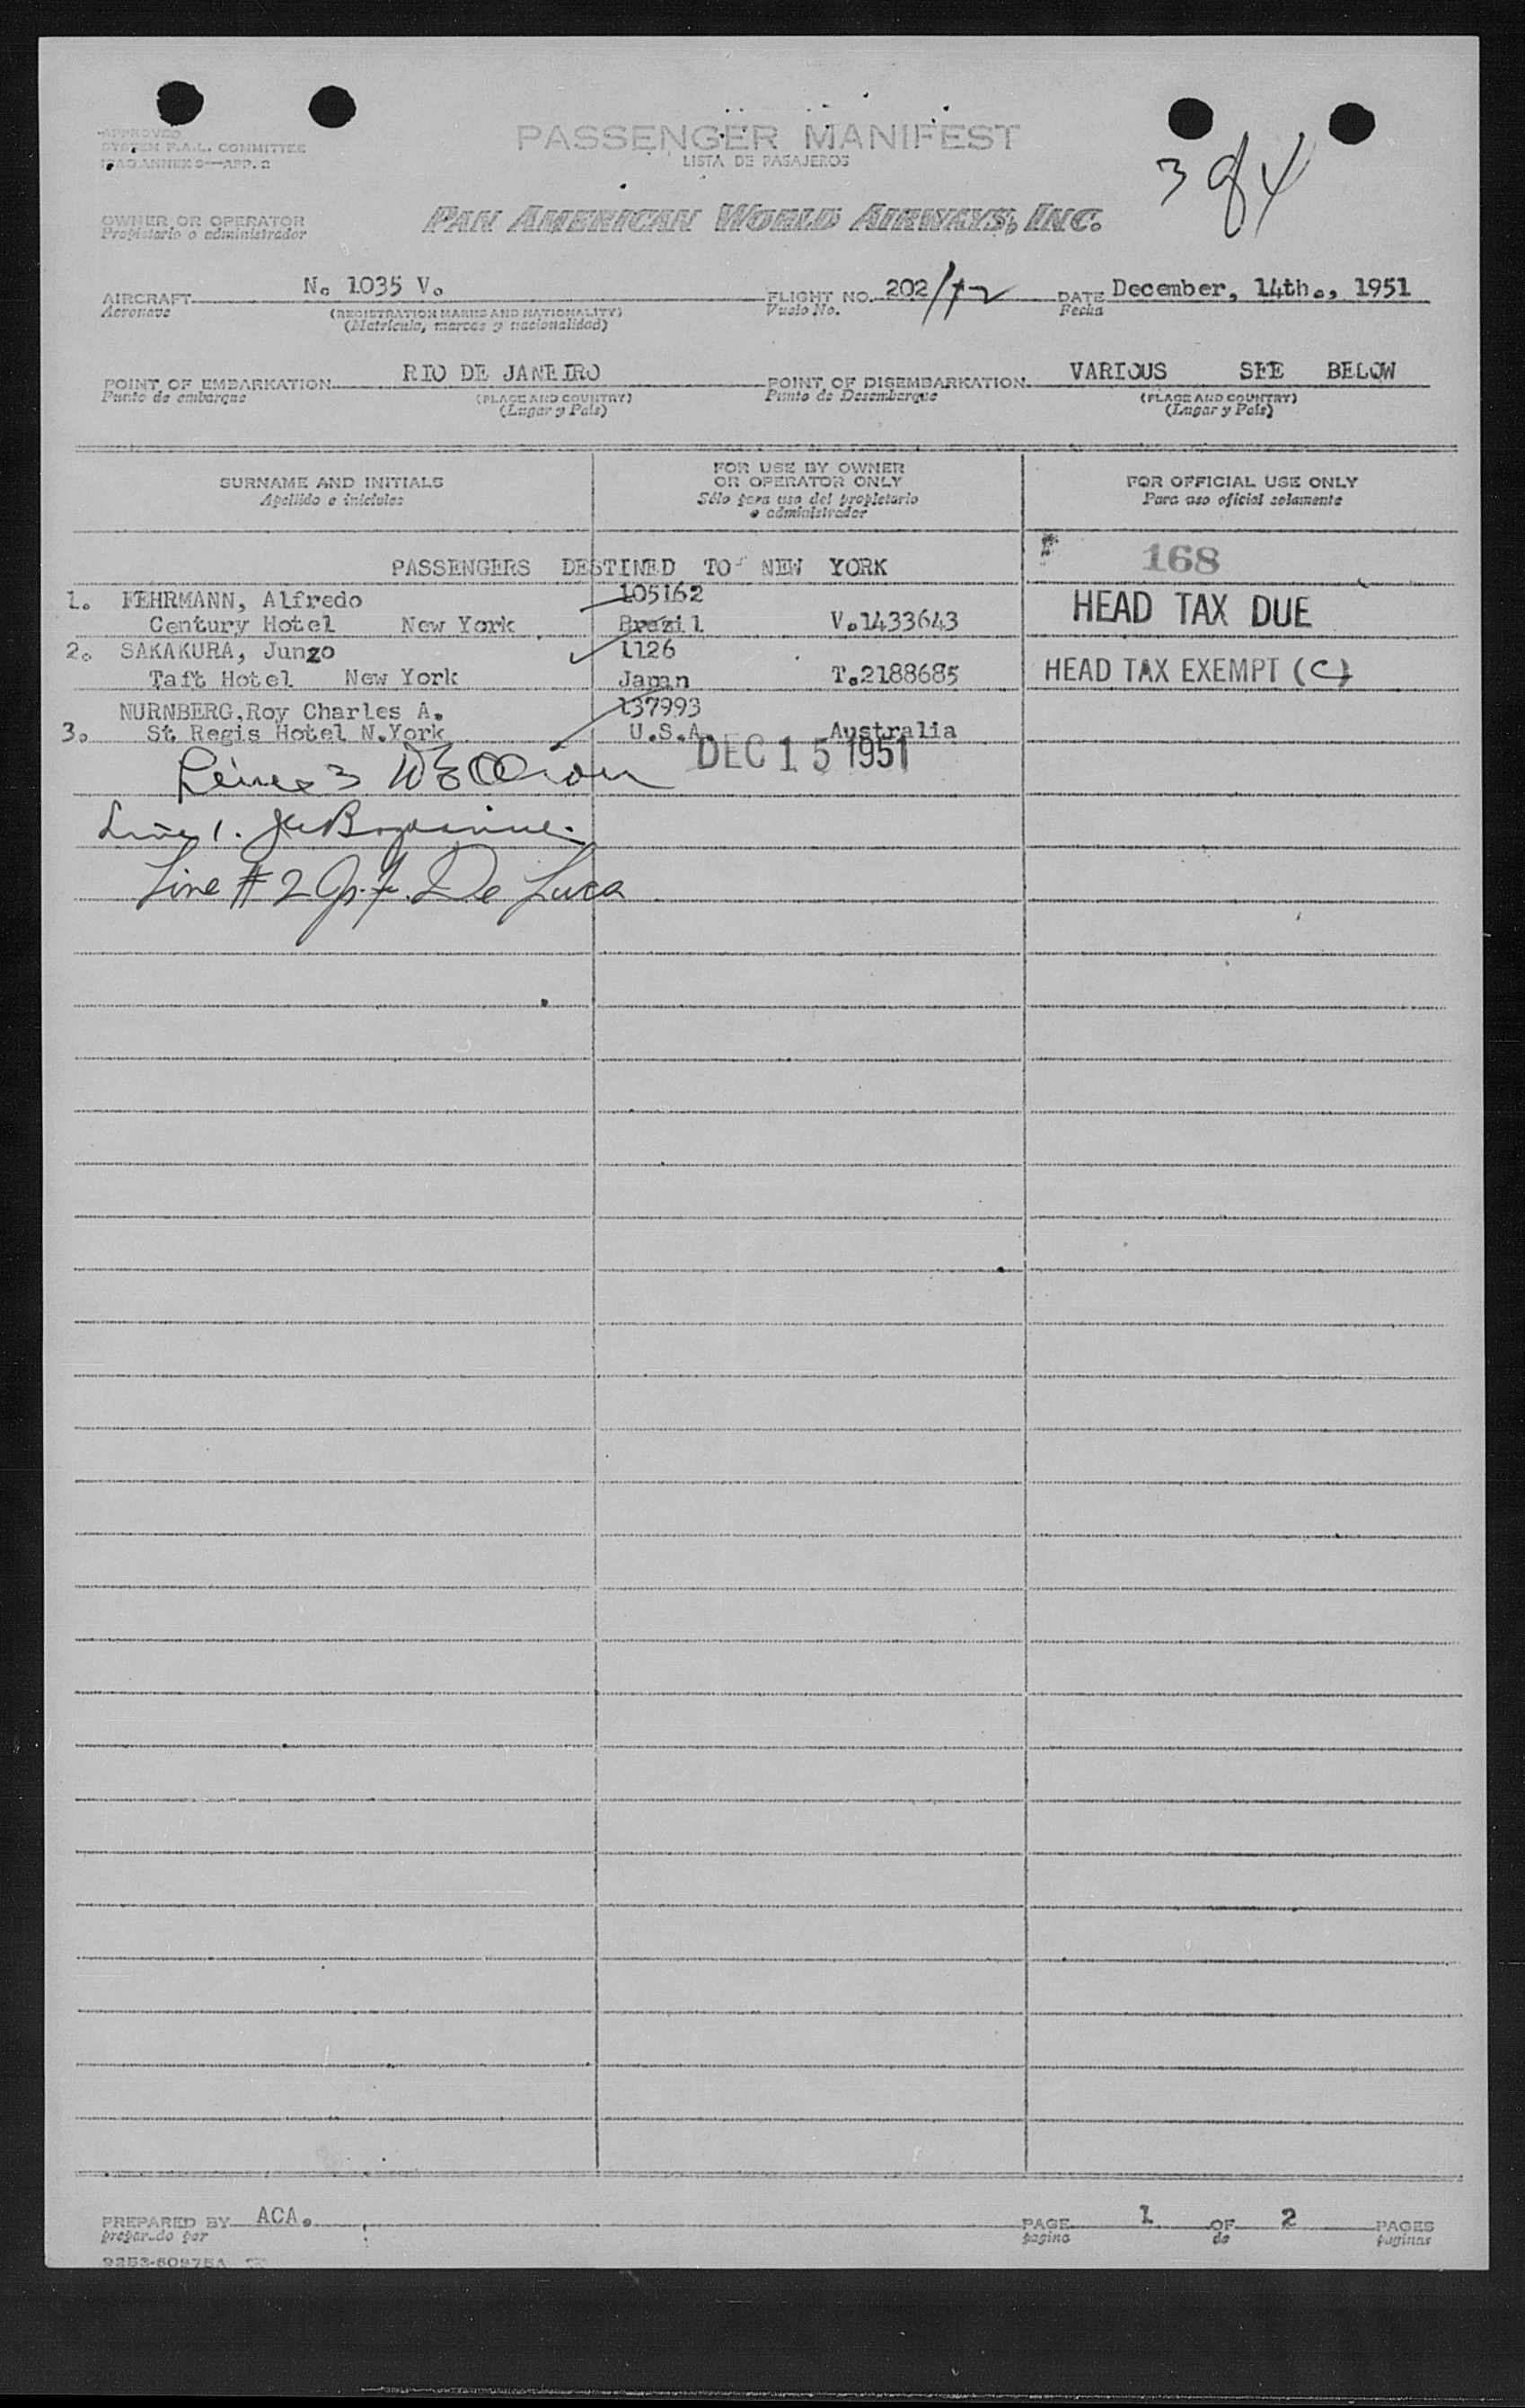 APPROVED
SYSTEM F.A.L. COMMITTEE
ICAO ANNEX 9—APP. 2
PASSENGER MANIFEST
LISTA DE PASAJEROS
3 of 4
OWNER OR OPERATOR
Propietario o administrador
PAN AMERICAN WORLD AIRWAYS, INC.
AIRCRAFT N. 1035 V. FLIGHT NO. 202/ DATE December, 14th., 1951
Aeronave (REGISTRATION MARKS AND NATIONALITY) Vuelo No. Fecha
(Matrícula, marcas y nacionalidad)
POINT OF EMBARKATION RIO DE JANEIRO POINT OF DISEMBARKATION VARIOUS SEE BELOW
Punto de embarque (PLACE AND COUNTRY) Punto de Desembarque (PLACE AND COUNTRY)
(Lugar y País) (Lugar y País)
SURNAME AND INITIALS FOR USE BY OWNER OR OPERATOR ONLY FOR OFFICIAL USE ONLY
Apellido e iniciales Sólo para uso del propietario o administrador Para uso oficial solamente
PASSENGERS DESTINED TO NEW YORK 168
1. FEHRMANN, Alfredo 105162 HEAD TAX DUE
Century Hotel New York Brazil V.1433643
2. SAKAKURA, Junzo 1126
Taft Hotel New York Japan T.2188685 HEAD TAX EXEMPT (C)
NURNBERG,Roy Charles A. 137993
3. St Regis Hotel N.York U.S.A. Australia
DEC 15 1951
Line 3
Line 1.
Line # 2 De Luca
PREPARED BY ACA. PAGE 1 OF 2 PAGES
preparado por pagina de paginas
9253-60275A